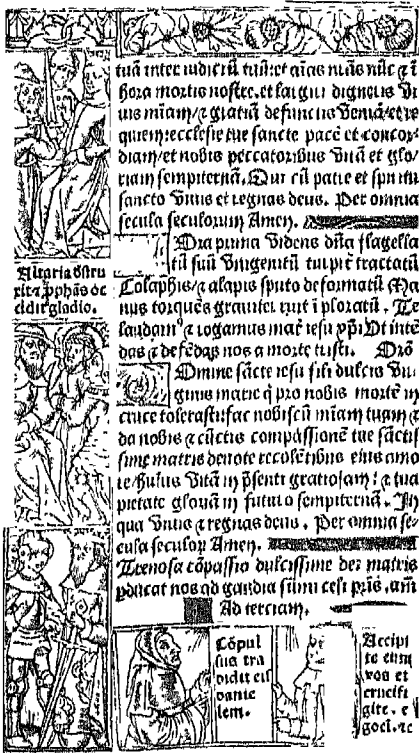 tuã inter iudiciũ tuũ: et aĩas nr̃as nũc ⁊ ĩ
hora mortis nostre. et largiri digneris vi
uis mĩam / ⁊ gratiã defunctis veniã / et re
quiem: ecclesie tue sancte pacẽ et concor
diam / et nobis peccatoribus vitã et glo
riam sempiternã. Qui cũ patre et spiritu
sancto vivis et regnas deus. Per omnia
secula seculorum Amen.
Ora prima videns dña flagella
tũ suũ vnigenitũ turpit̃ tractatũ
Colaphis / ⁊ alapis sputo deformatũ Ma
nus torquẽs graviter ruit ĩ ploratũ. Te
laudam⁹ ⁊ rogamus mat̃ iesu xp̃i. Vt intẽ
das ⁊ defẽdas nos a morte tristi. Orõ
Domine sãcte iesu fili dulcis vir
ginis marie q̃ pro nobis mortẽ in
cruce tolerasti: fac nobiscũ mĩam tuam / ⁊
da nobis ⁊ cũctis compassionẽ tue sãctis
sime matris deuote recolẽtibus eius amo
re huius vitã in p̃senti gratiosam: ⁊ tua
pietate gloriã in futuro sempiternã. In
qua vivis ⁊ regnas deus. Per omnia se
cula seculoꝝ Amen.
Trenosa cõpassio dulcissime dei matris
perducat nos ad gaudia summi celi pr̃is. amẽ
Ad terciam.
Altaria destru
xit ⁊ p̃phãs oc
cidit gladio.
Cõpul
sus tra
didit eis
danie
lem.
Accipi
te eum
vos et
crucifi
gite.